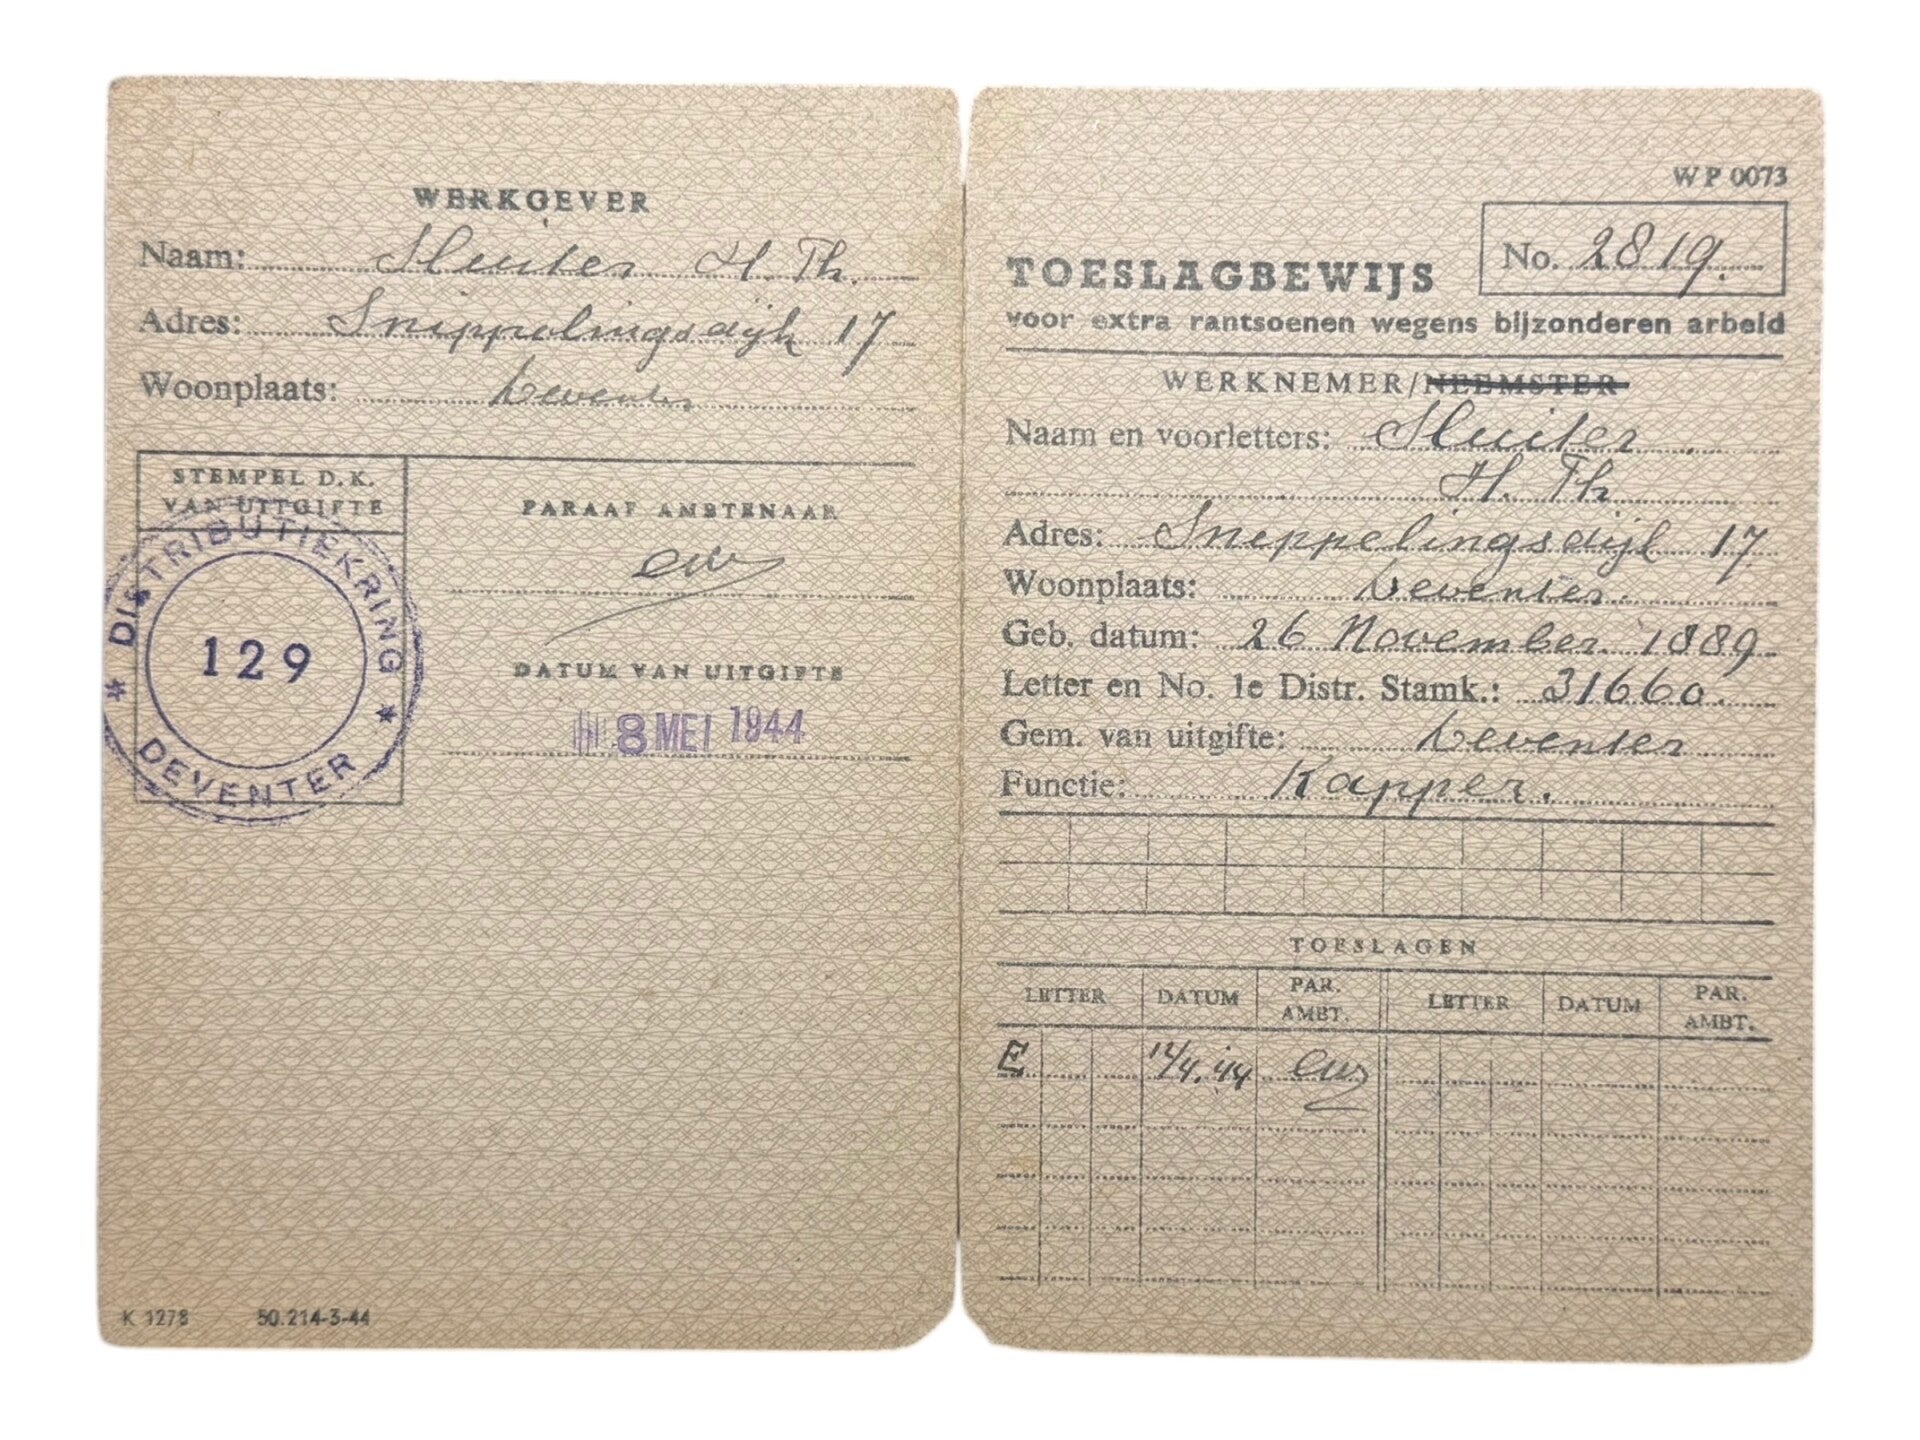 WERKGEVER
Naam: Sluiter H. Th.
Adres: Snippelingsdijk 17
Woonplaats: Deventer
STEMPEL D.K.
VAN UITGIFTE
DISTRIBUTIEKRING
129
DEVENTER
PARAAF AMBTENAAR
DATUM VAN UITGIFTE
8 MEI 1944
K 1278 50.214-3-44
WP 0073
No. 2819.
TOESLAGBEWIJS
voor extra rantsoenen wegens bijzonderen arbeid
WERKNEMER/NEEMSTER
Naam en voorletters: Sluiter
H. Th
Adres: Sneppelingsdijk 17
Woonplaats: Deventer.
Geb. datum: 26 November 1889.
Letter en No. 1e Distr. Stamk.: 31660.
Gem. van uitgifte: Deventer
Functie: Kapper.
TOESLAGEN
LETTER DATUM PAR. AMBT. LETTER DATUM PAR. AMBT.
E 12/4.44